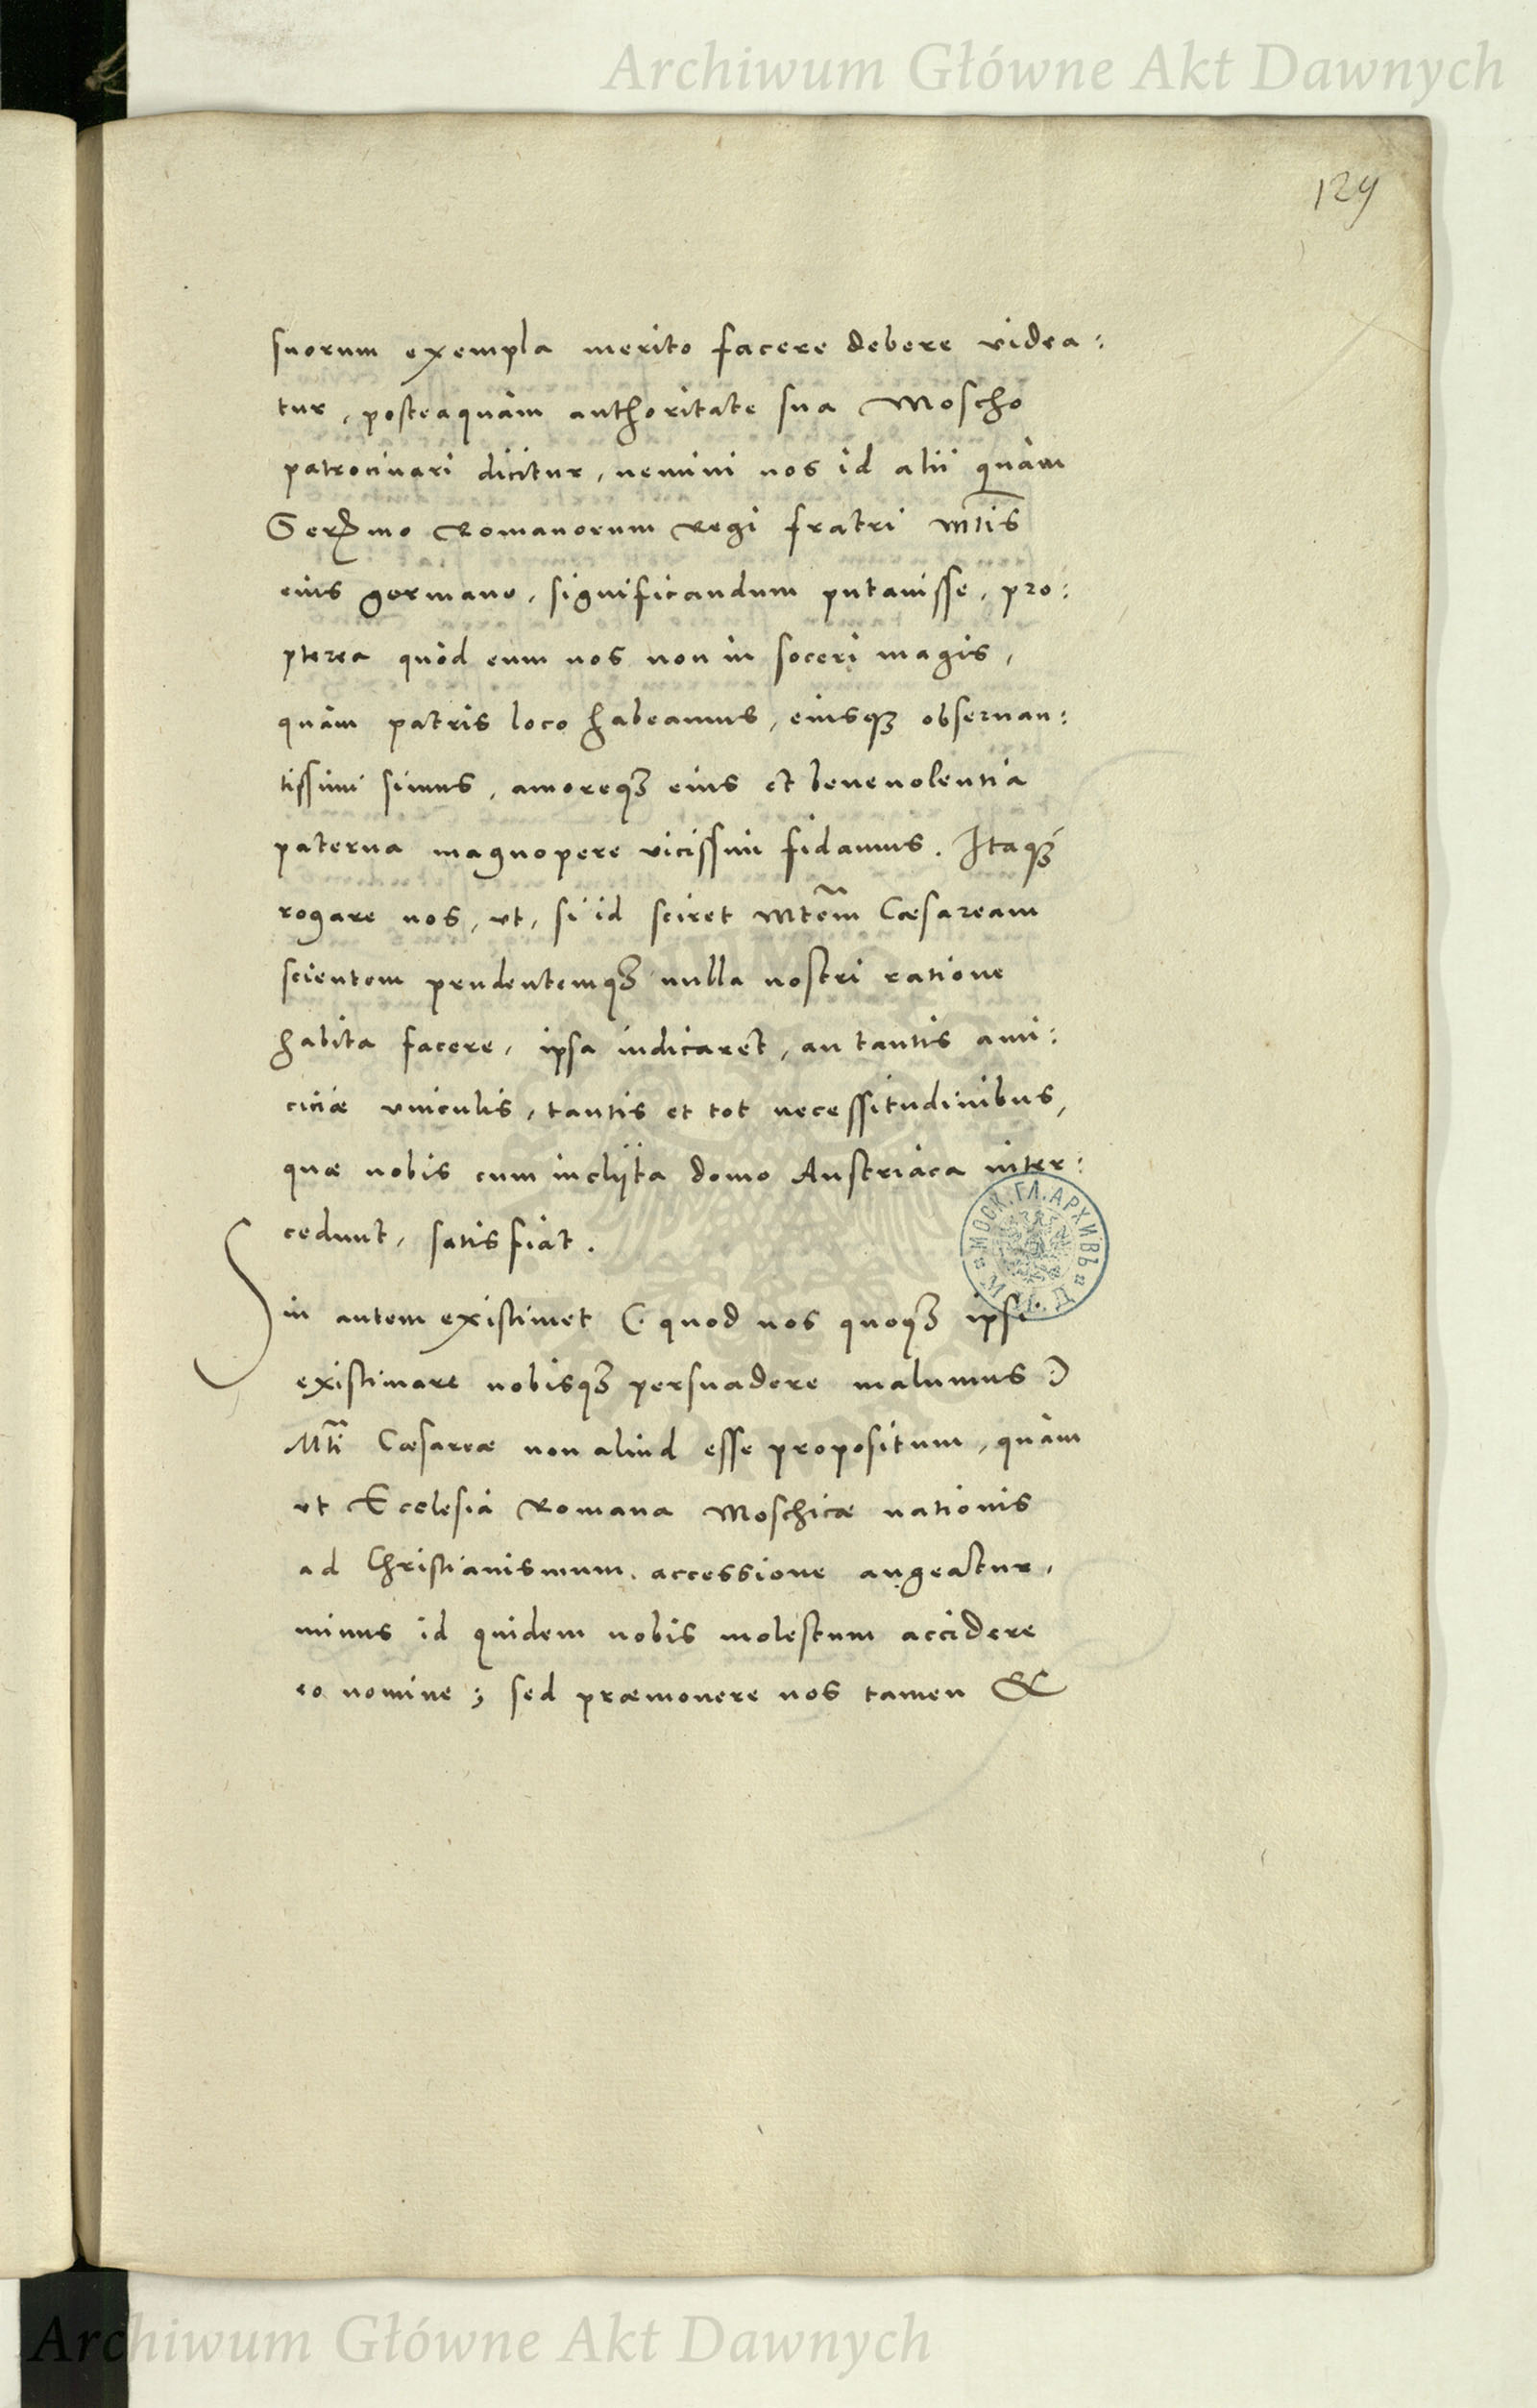 Archiwum Główne Akt Dawnych
129
suorum exempla merito facere debere videa:
tur, posteaquàm authoritate sua Moscho
patrocinari dicitur, nemini nos id alii quàm
Serᵐᵒ Romanorum Regi fratri Mtis
eius germano, significandum putauisse, pro:
pterea quòd eum nos non in soceri magis,
quàm patris loco habeamus, eiusq3 obseruan:
tissimi simus, amoreq3 eius et beneuolentia
paterna magnopere vicissim fidamus. Itaq3
rogare nos, vt, si id sciret Mtem Cæsaream
scientem prudentemq3 nulla nostri ratione
habita facere, ipsa iudicaret, an tantis ami:
ciciæ vinculis, tantis et tot necessitudinibus,
quæ nobis cum inclijta domo Austriaca inter:
cedunt, satisfiat.
Sin autem existimet (: quod nos quoq3 ipsi
existimare nobisq3 persuadere malumus :)
Mti Cæsareæ non aliud esse propositum, quàm
vt Ecclesia Romana Moschicæ nationis
ad Christianismum accessione augeatur,
minus id quidem nobis molestum accidere
eo nomine; sed præmonere nos tamen &
МОСК. ГЛ. АРХИВЪ
Archiwum Główne Akt Dawnych